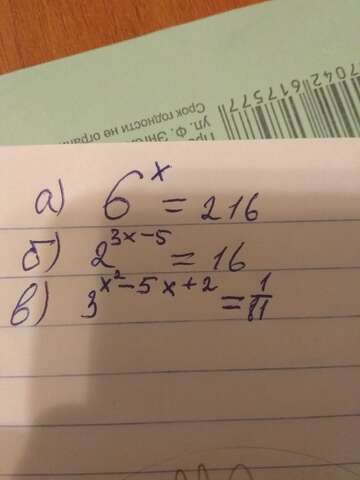 7042617577
Срок годности не огран
ул. Ф. Энг
а) 6^x = 216
б) 2^{3x-5} = 16
в) 3^{x²-5x+2} = 1/81